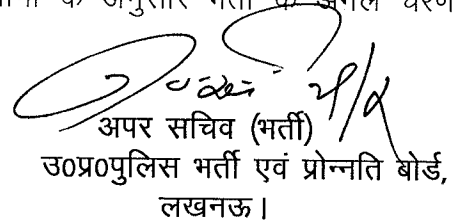 के अनुसार भर्ती के अगले चरण
अपर सचिव (भर्ती)
उ0प्र0पुलिस भर्ती एवं प्रोन्नति बोर्ड,
लखनऊ।